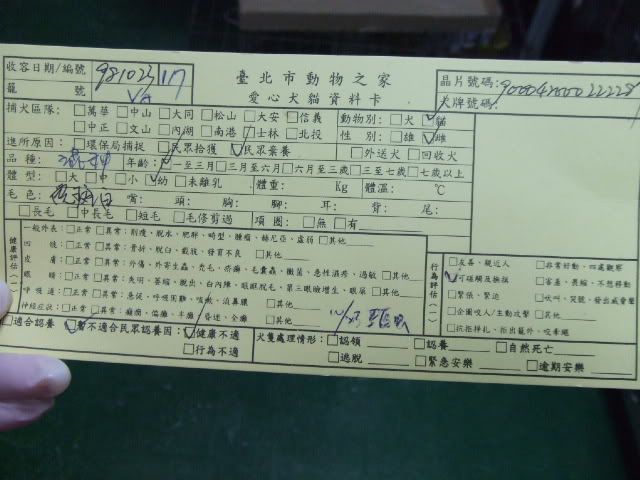 臺北市動物之家
愛心犬貓資料卡
收容日期/編號 981023 117
籠號
晶片號碼:
犬牌號碼:
捕犬區隊: □萬華 □中山 □大同 □松山 □大安 □信義
□中正 □文山 □內湖 □南港 □士林 □北投
動物別: □犬 ☑貓
性別: □雄 ☑雌
進所原因: □環保局捕捉 □民眾拾獲 ☑民眾棄養 □外送犬 □回收犬
品種: 混种 年齡: □一至三月 □三月至六月 □六月至三歲 □三至七歲 □七歲以上
體型: □大 □中 □小 ☑幼 □未離乳 體重: Kg 體溫: ℃
毛色: 嘴: 頭: 胸: 腳: 耳: 背: 尾:
□長毛 □中長毛 □短毛 □毛修剪過 項圈: □無 □有
健康評估(一)
一般外表: □正常 □異常: 削瘦、脫水、肥胖、畸型、腫瘤、赫尼亞、虛弱 □其他
四肢: □正常 □異常: 骨折、脫臼、截肢、發育不良 □其他
皮膚: □正常 □異常: 外傷、外寄生蟲、禿毛、疥癬、毛囊蟲、黴菌、急性濕疹、過敏 □其他
眼睛: □正常 □異常: 失明、萎縮、脫出、白內障、眼瞼脫毛、第三眼瞼增生、眼屎 □其他
呼吸道: □正常 □異常: 急促、呼吸困難、咳嗽、流鼻膿 □其他
神經症狀: □正常 □異常: 癲癇、偏癱、半癱、昏迷、全癱
行為評估(一)
□友善、親近人 □非常好動、四處觀察
☑可碰觸及撫摸 □害羞、畏縮、不想移動
□緊張、緊迫 □吠叫、哭號、發出威脅聲
□企圖咬人/主動攻擊 □其他
□抗拒掙扎、拒出籠外、咬牽繩
□適合認養 ☑暫不適合民眾認養因: ☑健康不適
□行為不適
犬隻處理情形: □認領 □認養 □自然死亡
□逃脫 □緊急安樂 □逾期安樂